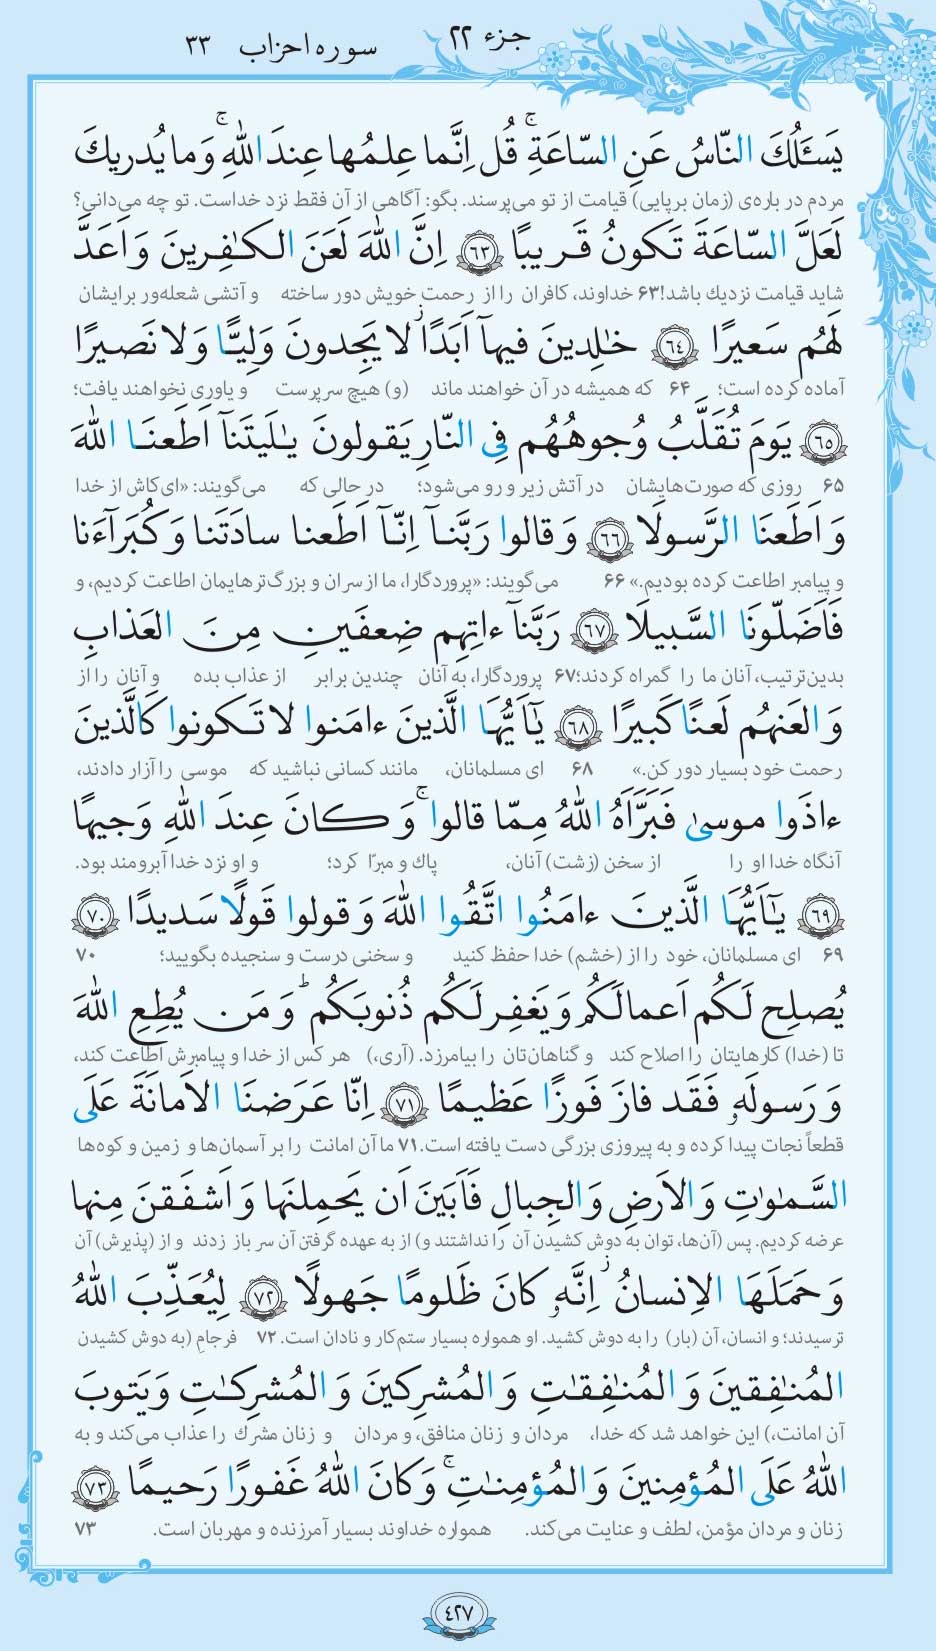 جزء ۲۲
سوره احزاب ۳۳
يَسـَٔلُكَ النّاسُ عَنِ السّاعَةِ ۚ قُل اِنَّما عِلمُها عِندَ اللّٰهِ ۚ وَما يُدريكَ
مردم در باره‌ی (زمان برپایی) قیامت از تو می‌پرسند. بگو: آگاهی از آن فقط نزد خداست. تو چه می‌دانی؟
لَعَلَّ السّاعَةَ تَكونُ قَريبًا ﴿٦٣﴾ اِنَّ اللّٰهَ لَعَنَ الكـٰفِرينَ وَاَعَدَّ
شاید قیامت نزدیك باشد! ۶۳ خداوند، کافران را از رحمت خویش دور ساخته و آتشی شعله‌ور برایشان
لَهُم سَعيرًا ﴿٦٤﴾ خـٰلِدينَ فيهآ اَبَدًا ۖ لا يَجِدونَ وَلِيًّا وَلا نَصيرًا
آماده کرده است؛ ۶۴ که همیشه در آن خواهند ماند (و) هیچ سرپرست و یاوری نخواهند یافت؛
﴿٦٥﴾ يَومَ تُقَلَّبُ وُجوهُهُم فِى النّارِ يَقولونَ يـٰلَيتَنآ اَطَعنَا اللّٰهَ
۶۵ روزی که صورت‌هایشان در آتش زیر و رو می‌شود؛ در حالی که می‌گویند: «ای‌کاش از خدا
وَاَطَعنَا الرَّسولَا ﴿٦٦﴾ وَقالوا رَبَّنآ اِنّآ اَطَعنا سادَتَنا وَكُبَرآءَنا
و پیامبر اطاعت کرده بودیم.» ۶۶ می‌گویند: «پروردگارا، ما از سران و بزرگ‌ترهایمان اطاعت کردیم، و
فَاَضَلّونَا السَّبيلَا ﴿٦٧﴾ رَبَّنآ ءاتِهِم ضِعفَينِ مِنَ العَذابِ
بدین‌ترتیب، آنان ما را گمراه کردند؛ ۶۷ پروردگارا، به آنان چندین برابر از عذاب بده و آنان را از
وَالعَنهُم لَعنًا كَبيرًا ﴿٦٨﴾ يـٰٓاَيُّهَا الَّذينَ ءامَنوا لا تَكونوا كَالَّذينَ
رحمت خود بسیار دور کن.» ۶۸ ای مسلمانان، مانند کسانی نباشید که موسی را آزار دادند،
ءاذَوا موسىٰ فَبَرَّاَهُ اللّٰهُ مِمّا قالوا ۚ وَكانَ عِندَ اللّٰهِ وَجيهًا
آنگاه خدا او را از سخن (زشت) آنان، پاك و مبرّا کرد؛ و او نزد خدا آبرومند بود.
﴿٦٩﴾ يـٰٓاَيُّهَا الَّذينَ ءامَنُوا اتَّقُوا اللّٰهَ وَقولوا قَولًا سَديدًا ﴿٧٠﴾
۶۹ ای مسلمانان، خود را از (خشم) خدا حفظ کنید و سخنی درست و سنجیده بگویید؛ ۷۰
يُصلِح لَكُم اَعمالَكُم وَيَغفِر لَكُم ذُنوبَكُم ۗ وَمَن يُطِعِ اللّٰهَ
تا (خدا) کارهایتان را اصلاح کند و گناهان‌تان را بیامرزد. (آری،) هر کس از خدا و پیامبرش اطاعت کند،
وَرَسولَهٗ فَقَد فازَ فَوزًا عَظيمًا ﴿٧١﴾ اِنّا عَرَضنَا الاَمانَةَ عَلَى
قطعاً نجات پیدا کرده و به پیروزی بزرگی دست یافته است. ۷۱ ما آن امانت را بر آسمان‌ها و زمین و کوه‌ها
السَّمـٰوٰتِ وَالاَرضِ وَالجِبالِ فَاَبَينَ اَن يَحمِلنَها وَاَشفَقنَ مِنها
عرضه کردیم. پس (آن‌ها، توان به دوش کشیدن آن را نداشتند و) از به عهده گرفتن آن سر باز زدند و از (پذیرش) آن
وَحَمَلَهَا الاِنسانُ ۖ اِنَّهٗ كانَ ظَلومًا جَهولًا ﴿٧٢﴾ لِيُعَذِّبَ اللّٰهُ
ترسیدند؛ و انسان، آن (بار) را به دوش کشید. او همواره بسیار ستم‌کار و نادان است. ۷۲ فرجامِ (به دوش کشیدن
المُنـٰفِقينَ وَالمُنـٰفِقـٰتِ وَالمُشرِكينَ وَالمُشرِكـٰتِ وَيَتوبَ
آن امانت،) این خواهد شد که خدا، مردان و زنان منافق، و مردان و زنان مشرك را عذاب می‌کند و به
اللّٰهُ عَلَى المُؤمِنينَ وَالمُؤمِنـٰتِ ۚ وَكانَ اللّٰهُ غَفورًا رَحيمًا ﴿٧٣﴾
زنان و مردان مؤمن، لطف و عنایت می‌کند. همواره خداوند بسیار آمرزنده و مهربان است. ۷۳
٤٢٧